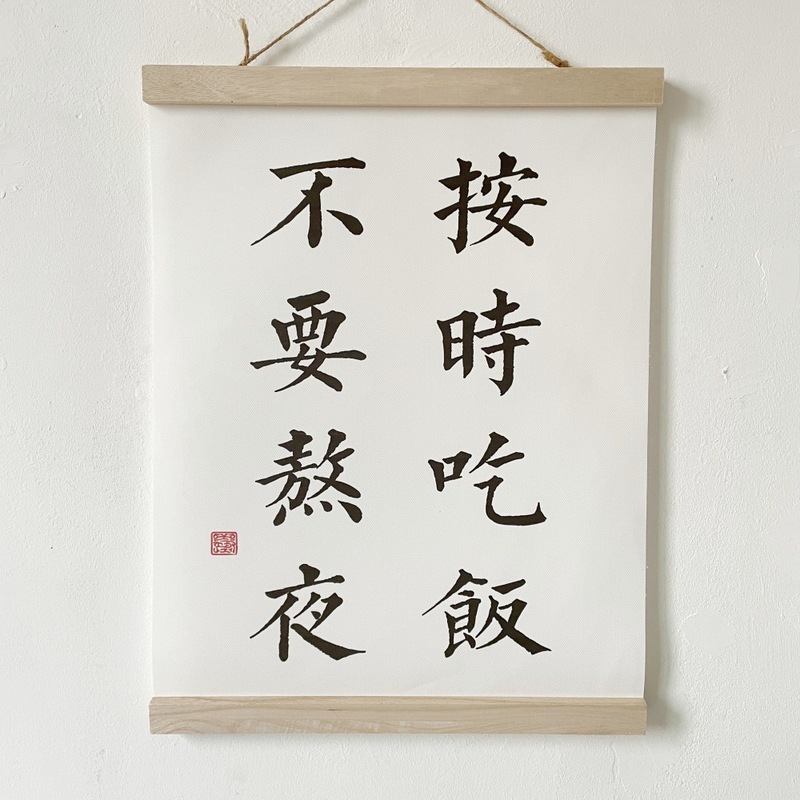 按時吃飯
不要熬夜